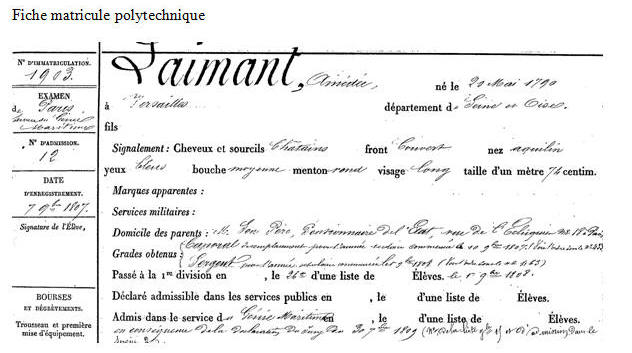 Fiche matricule polytechnique
N° D'IMMATRICULATION.
1903.
EXAMEN
de Paris
Maritime
N° D'ADMISSION.
12
DATE
D'ENREGISTREMENT.
7 9bre 1807.
Signature de l'Élève.
BOURSES
ET DÉGRÈVEMENTS.
Trousseau et première
mise d'équipement.
Laimant, Amédée, né le 20 Mai 1790
à Versailles département de Seine et Oise.
fils
Signalement: Cheveux et sourcils Châtains front Couvert nez aquilin
yeux bleus bouche moyenne menton rond visage long taille d'un mètre 74 centim.
Marques apparentes :
Services militaires :
Domicile des parents : M. Son Père, Pensionnaire de l'Etat, rue de l' Paris
Grades obtenus : Caporal pour l'année commencé le 10 9bre 1807.
Sergent pour l'année scolaire 1808
Passé à la 1re division en , le 26e d'une liste de Élèves. le 9bre 1808.
Déclaré admissible dans les services publics en , le d'une liste de Élèves.
Admis dans le service du Génie Maritime , le d'une liste de Élèves.
en conséquence de la déclaration du Jury du 30 7bre 1809